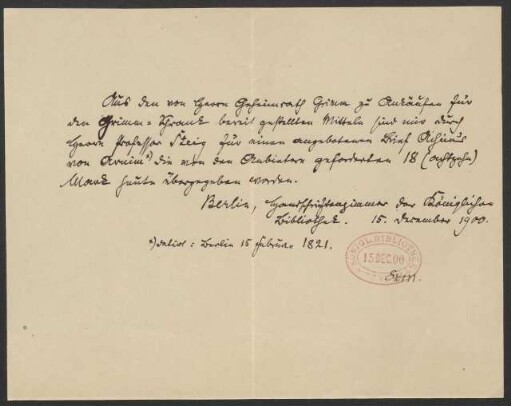 Aus den von Herrn Geheimrath Grimm zu Ankäufen für
den Grimm-Schrank bereit gestellten Mitteln sind mir durch
Herrn Professor Steig für einen angebotenen Brief Achims
von Arnim*) die von den Anbietern geforderten 18 (achtzehn)
Mark heute übergegeben worden.
Berlin, Handschriftenzimmer der Königlichen
Bibliothek. 15. December 1900.
*) datiert: Berlin 15 Februar 1821.
KÖNIGL. BIBLIOTHEK
15 DEC. 00